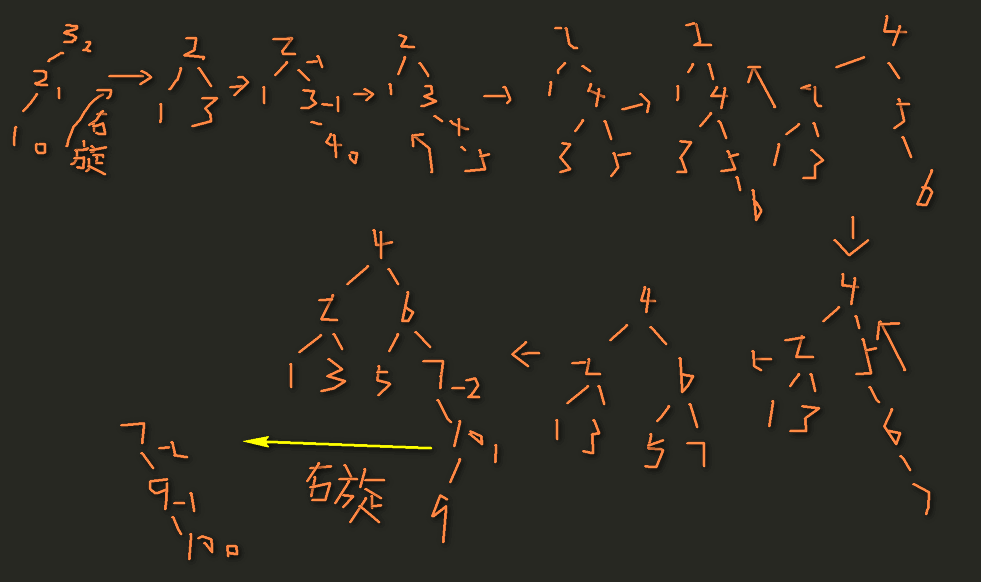 3 2
2 1
1 0
右旋
2
1 3
2 -1
1 3 -1
4 0
2
1 3
4
5
2
1 4
3 5
2
1 4
3 5
6
4
2 5
1 3 6
4
2 5
1 3 6
7
4
2 6
1 3 5 7
4
2 6
1 3 5 7 -2
10 1
9
右旋
7 -2
9 -1
10 0